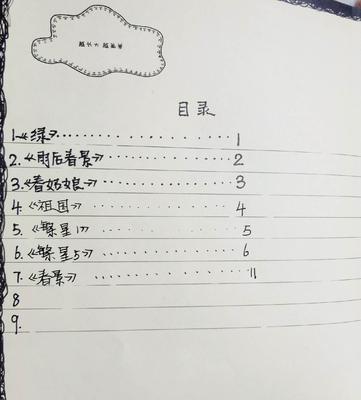 目录
1.《绿》··················1
2.《雨后春景》··············2
3.《春姑娘》···············3
4.《祖国》················4
5.《繁星1》··············5
6.《繁星5》··············6
7.《春景》···············11
8
9.